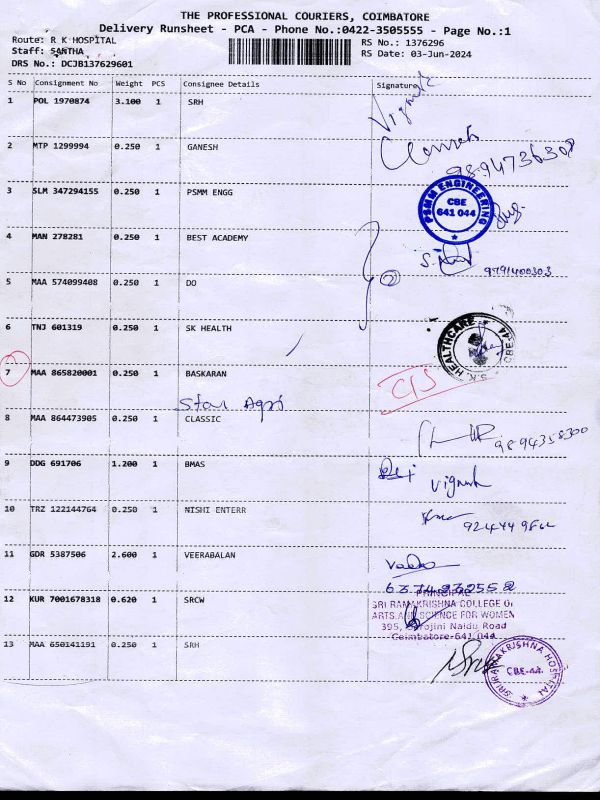 THE PROFESSIONAL COURIERS, COIMBATORE
Delivery Runsheet - PCA - Phone No.:0422-3505555 - Page No.:1
Route: R K HOSPITAL
RS No.: 1376296
Staff: SANTHA
RS Date: 03-Jun-2024
DRS No.: DCJB137629601
S No Consignment No Weight PCS Consignee Details Signature
1 POL 1970874 3.100 1 SRH
Vignesh
2 MTP 1299994 0.250 1 GANESH
9894736308
3 SLM 347294155 0.250 1 PSMM ENGG
PSMM ENGINEERING
CBE
641 044
4 MAN 278281 0.250 1 BEST ACADEMY
9791400303
5 MAA 574099408 0.250 1 DO
2
6 TNJ 601319 0.250 1 SK HEALTH
S.K. HEALTHCARE CBE 44
7 MAA 865820001 0.250 1 BASKARAN
C/S
Star Agri
8 MAA 864473905 0.250 1 CLASSIC
9894358300
9 DDG 691706 1.200 1 BMAS
Vignesh
10 TRZ 122144764 0.250 1 NISHI ENTERR
11 GDR 5387506 2.600 1 VEERABALAN
12 KUR 7001678318 0.620 1 SRCW
PRINCIPAL
SRI RAMAKRISHNA COLLEGE OF
ARTS AND SCIENCE FOR WOMEN
395, Sarojini Naidu Road
Coimbatore-641 044
13 MAA 650141191 0.250 1 SRH
SRI RAMAKRISHNA HOSPITAL
CBE-44.